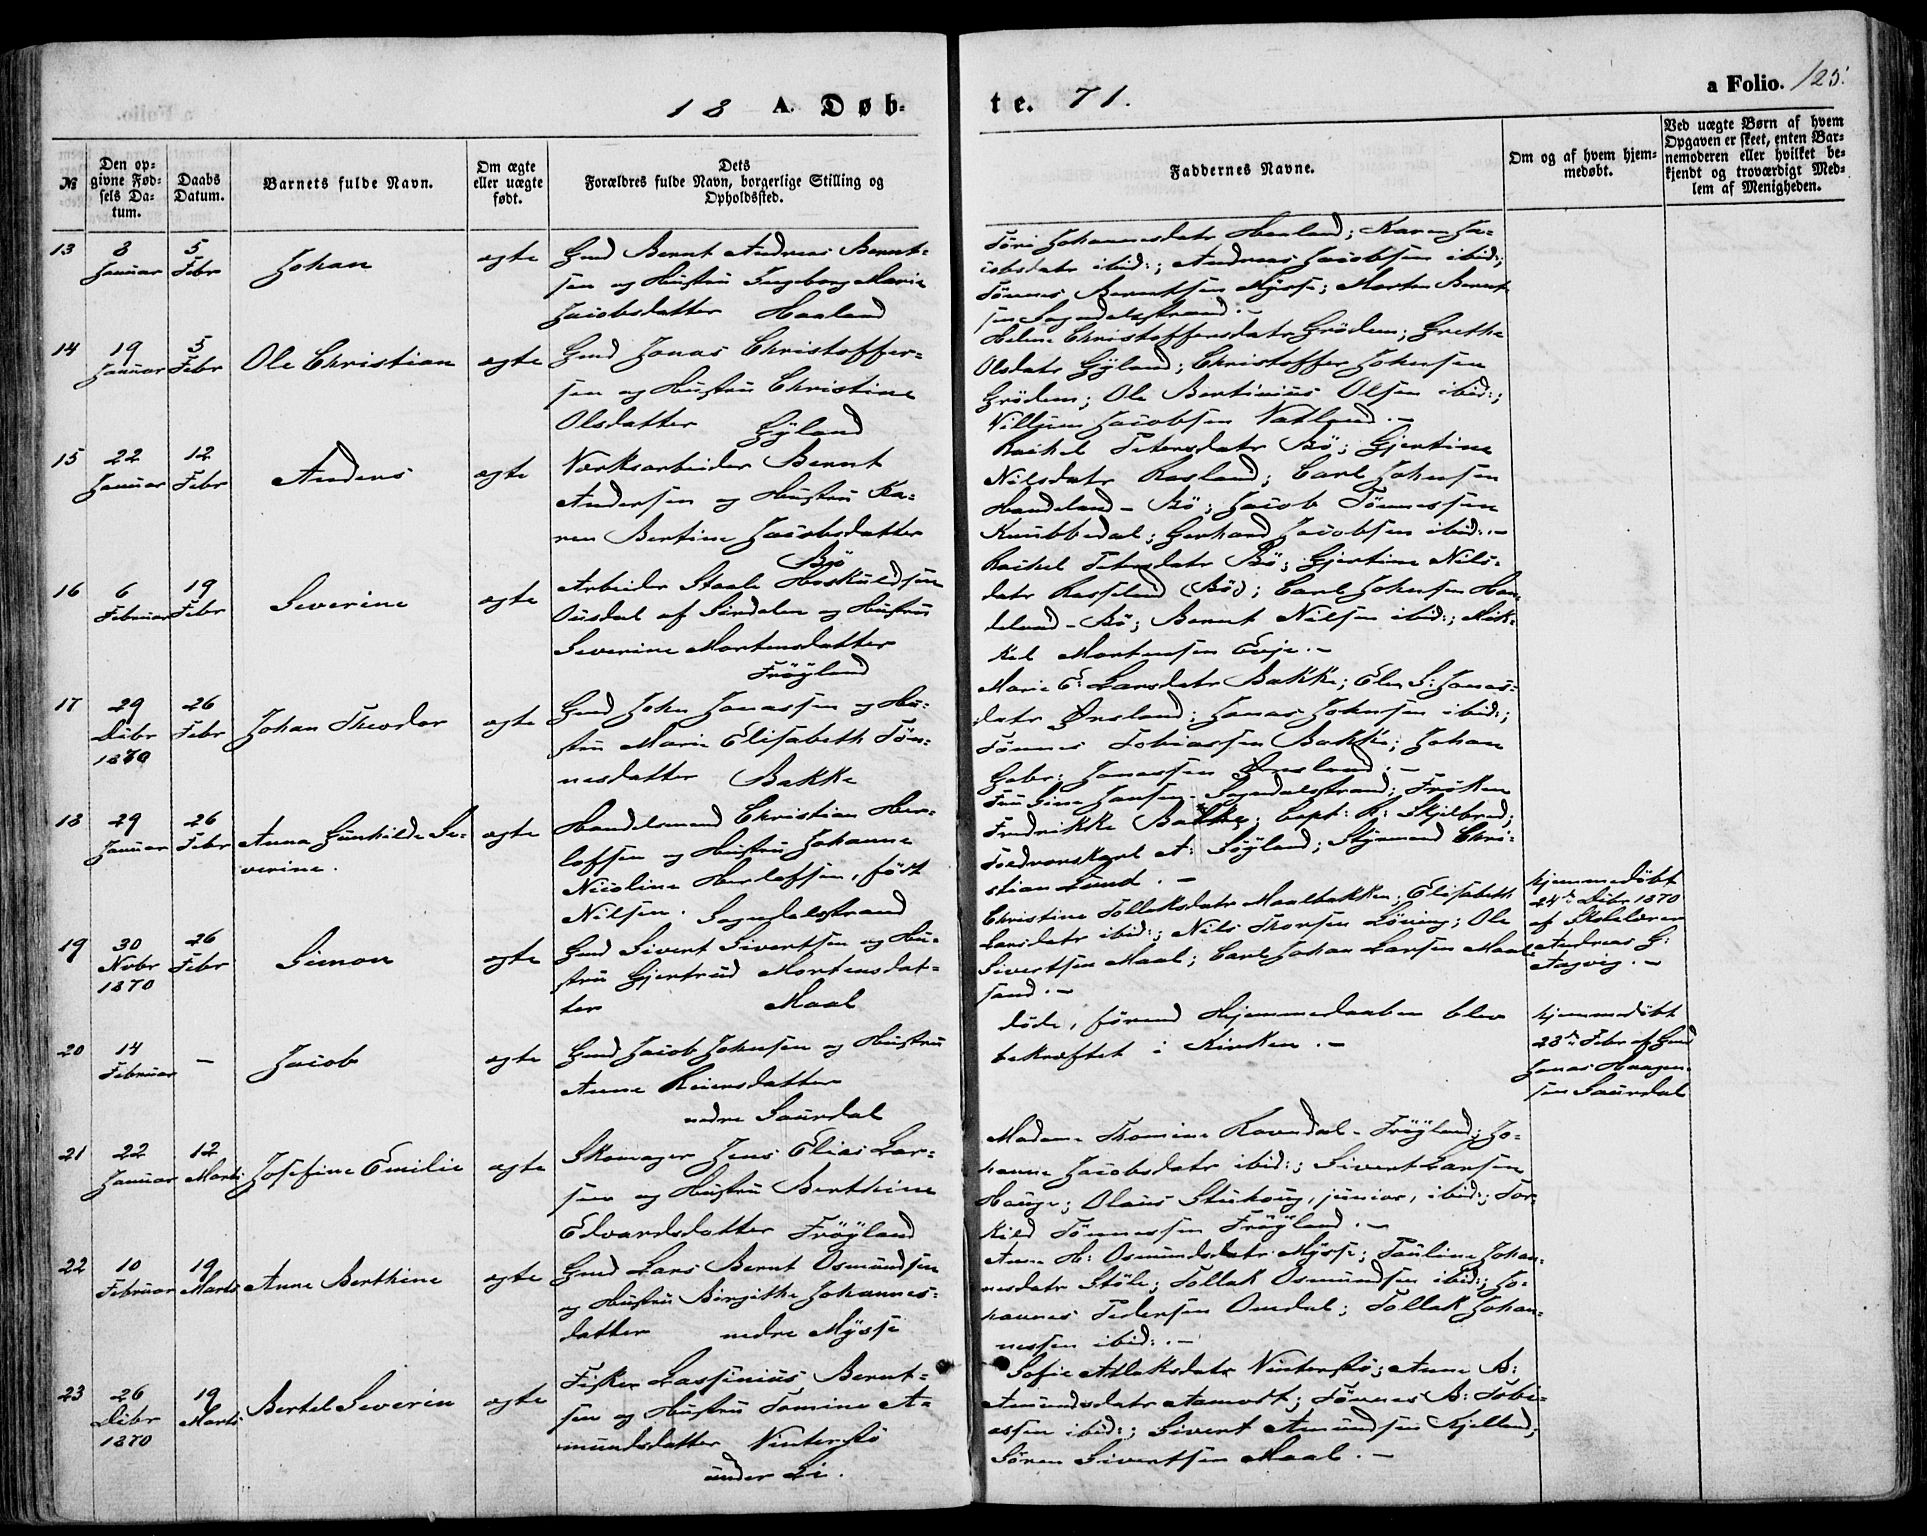 18 A. Døb-
te. 71.
a Folio. 125.
No
Den op-
givne Fød-
sels Da-
tum.
Daabs
Datum.
Barnets fulde Navn.
Om ægte
eller uægte
født.
Dets
Forældres fulde Navn, borgerlige Stilling og
Opholdssted.
Faddernes Navne.
Om og af hvem hjem-
medøbt.
Ved uægte Børn af hvem
Opgaven er skeet, enten Bar-
nemoderen eller hvilket be-
kjendt og troværdigt Med-
lem af Menigheden.
13
8
Januar
5
Febr
Johan
ægte
Gmd Bernt Andreas Bernt-
sen og Hustru Ingeborg Marie
Jacobsdatter Haaland
Tóri Johannesdatr Haaland; Karen Ja-
cobsdatr ibid:; Andreas Jacobsen ibid:;
Tönnes Berntsen Mÿsse; Morten Bernt-
sen Sogndalsstrand. –
14
19
Januar
5
Febr
Ole Christian
ægte
Gmd Jonas Christoffer-
sen og Hustru Christine
Olsdatter Gÿland
Helene Christoffersdatr Grödem; Grethe
Olsdatr Gÿland; Christoffer Johnsen
Grödem; Ole Bertinius Olsen ibid:;
Villum Jacobsen Vatland. –
15
22
Januar
12
Febr
Anders
ægte
Værksarbeider Bernt
Andersen og Hustru Ka-
ren Bertine Jacobsdatter
Bö
Rachel Petersdatr Bö; Gjertine
Nilsdatr Rasland; Carl Johnsen
Handeland – Bö; Jacob Tönnessen
Knubbedal; Gerhard Jacobsen ibid:. –
16
6
Februar
19
Febr
Severine
ægte
Arbeider Staale Hoskuldsen
Ousdal af Sirdalen og Hustru
Severine Mortensdatter
Fröÿland
Rachel Petersdatr Bö; Gjertine Nils-
datr Rasseland (Bö); Carl Johnsen Han-
deland – Bö; Bernt Nilsen ibid:; Mik-
kel Mortensen Evje. –
17
29
Dcbr
1870
26
Febr
Johan Theodor
ægte
Gmd John Jonassen og Hu-
stru Marie Elisabeth Tön-
nesdatter Bakke
Marie E: Larsdatr Bakke; Elen S: Jonas-
datr Ørsland; Jonas Johnsen ibid:;
Tönnes Tobiassen Bakke; Johan
Gabr: Jonassen Ørsland. –
18
29
Januar
26
Febr
Anna Gunhilde Se-
verine.
ægte
Handelsmand Christian Her-
lofsen og Hustru Johanne
Nicoline Herlofsen, født
Nilsen. Sogndalsstrand
Fru Sine Jansen – Sogndalsstrand; Fröken
Fredrikke Bakke; Capt: R: Skjelbred;
Toldvorskarl A: Söÿland; Stÿrmand Chri-
stian Lund. –
19
30
Nvbr
1870
26
Febr
Simon
ægte
Gmd Sivert Sivertsen og Hu-
stru Gjertrud Mortensdat-
ter Maal
Christine Tollaksdatr Maalbakken; Elisabeth
Larsdatr ibid:; Nils Thorsen Löving; Ole
Sivertsen Maal; Carl Johan Larsen Maal-
sand. –
hjemmedöbt
24de Dcbr 1870
af Skolelærer
Andreas G:
Aagvig. –
20
14
Februar
–
Jacob
ægte
Gmd Jacob Johnsen og Hustru
Anne Reiersdatter
nedre Saurdal
döde, förend Hjemmedaaben blev
bekræftet i Kirken. –
hjemmedöbt
28de Febr af Gmd
Jonas Haagen-
sen Saurdal
21
22
Januar
12
Marts
Josefine Emilie
ægte
Skomager Jens Elias Lar-
sen og Hustru Berthine
Edvardsdatter Fröÿland
Madame Thomine Ravndal – Fröÿland; Jo-
hanne Jacobsdatr ibid:; Sivert Larsen
Hauge; Olaus Stuhoug, junior, ibid:; Tor-
kild Tönnessen Fröÿland. –
22
10
Februar
19
Marts
Anne Berthine
ægte
Gmd Lars Bernt Osmundsen
og Hustru Birgithe Johannes-
datter nedre Mÿsse
Anne H: Osmundsdatr Mÿsse; Pauline Johan-
nesdatr Stöle; Tollak Osmundsen ibid:; Jo-
hannes Pedersen Omdal; Tollak Johan-
nessen ibid:. –
23
26
Dcbr
1870
19
Marts
Bertel Severin
ægte
Fisker Lassinius Bernt-
sen og Hustru Tomine A-
mundsdatter Vinterstö
under Li.
Sofie Atlaksdatr Vinterstö; Anne B:
Amundsdatr Aamodt; Tönnes B: Tobi-
assen ibid:; Sivert Amundsen Kjelland;
Sören Sivertsen Maal. –